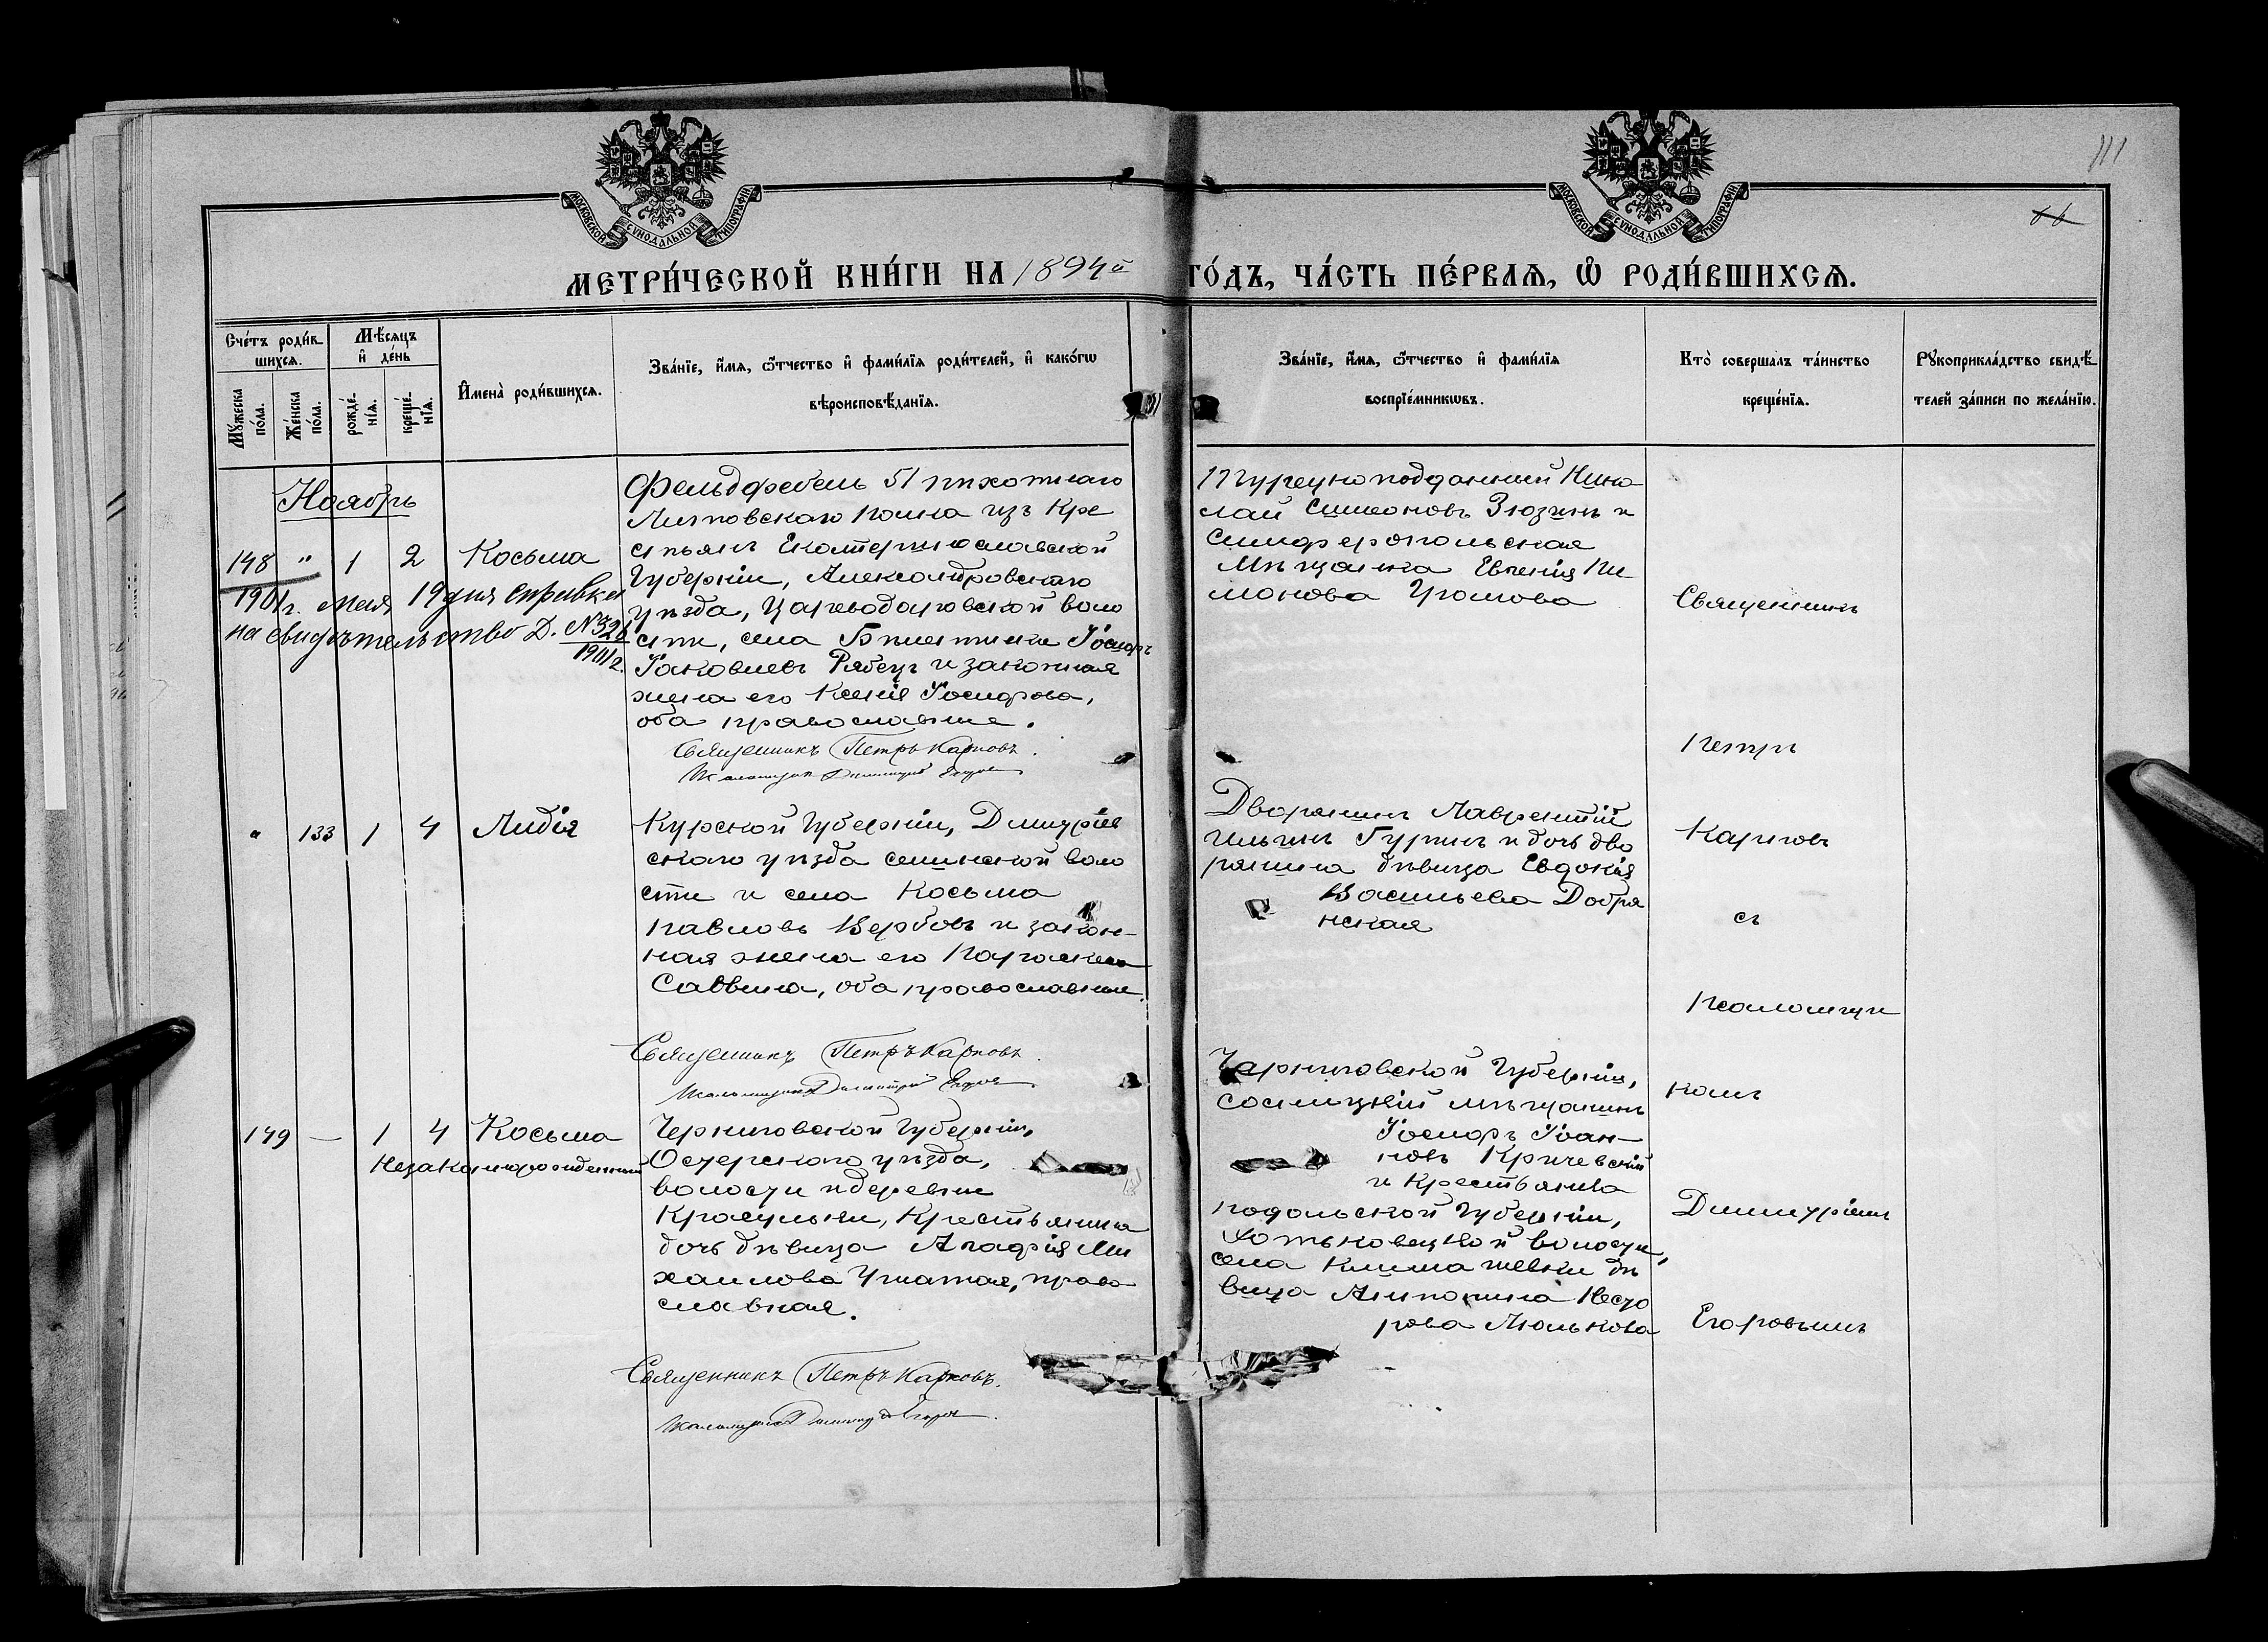 111
66
МОСКОВСКОЙ СѴНОДАЛЬНОЙ ТИПОГРАФІИ
МОСКОВСКОЙ СѴНОДАЛЬНОЙ ТИПОГРАФІИ
МЕТРИ́ЧЕСКОЙ КНИ́ГИ НА 1894й ГО́ДЪ, ЧА́СТЬ ПЕ́РВАѦ, Ѡ РОДИ́ВШИХСѦ.
Сче́тъ роди́в
шихсѧ.
Мѣ́сѧцъ
и де́нь
Мꙋ́жеска
по́ла.
Же́нска
по́ла.
рожде́
нїѧ.
креще́
нїѧ.
И҆мена̀ роди́вшихсѧ.
Зва́нїе, и҆́мѧ, ѻ҆́тчество и҆ фами́лїѧ роди́телей, и҆ како́гѡ
вѣроисповѣ́данїѧ.
Зва́нїе, и҆́мѧ, ѻ҆́тчество и҆ фами́лїѧ
воспрїе́мникѡвъ.
Кто̀ соверша́лъ та́инство
креще́нїѧ.
Рꙋкоприкла́дство свидѣ́
телей за́писи по жела́нїю.
Ноябрь
148 " 1 2 Косьма
1901 г. мая 19 дня справка
на свидѣтельство Д. №326
1901 г.
Фельдфебель 51 пѣхотнаго
Литовскаго полка изъ Кре
стьянъ Екатеринославской
Губерніи, Александровскаго
уѣзда, Царводаровской воло
сти, села Іосифъ
Іаковлевъ Рябецъ и законная
жена его Ксенія Іосифова,
оба православные.
Священникъ Петръ Карповъ.
Псаломщикъ Димитрій Егоров
Турецкоподданный Нико
лай Симеоновъ Зюзинъ и
Симферопольская
Мѣщанка Евгенія Ти
монова Громова
Священникъ
Петръ
Карповъ
съ
Псаломщи
комъ
Димитріемъ
Егоровымъ
" 133 1 4 Лидія
Курской Губерніи, Дмитріев
скаго уѣзда селинской воло
сти и села Косьма
Павловъ Вербовъ и закон-
ная жена его Параскева
Саввина, оба православные.
Священникъ Петръ Карповъ.
Псаломщикъ Димитрій Егоров
Дворянинъ Лаврентій
Ильинъ Гуринъ и дочь дво
рянина дѣвица Евдокія
Васильева Добря
нская
149 — 1 4 Косьма
Незаконнорожденный
Черниговской Губерніи,
Остерскаго уѣзда,
волости и деревни
Красульки, Крестьянина
дочь дѣвица Агафія Ми
хаилова Ушатая, право
славная.
Священникъ Петръ Карповъ.
Псаломщикъ Димитрій Егоров
Черниговской Губерніи,
Сосницкій мѣщанинъ
Іосифъ Іоан-
новъ Кричевскій
и Крестьянка
Подольской Губерніи,
Хотьковецкой волости,
села Климашевки дѣ
вица Антонина Несто
рова Люлькова